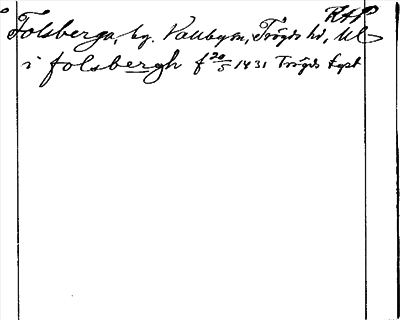 RAP
Folsberga, by. Vallby sn, Trögds hd, Ul
i folsbergh f 20/5 1431 Trögds kpt